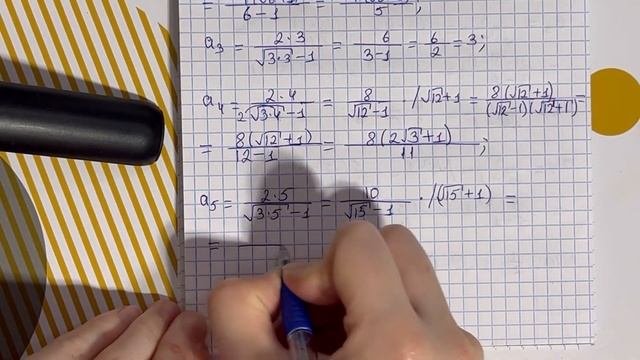 6-1 = 5 ;
a₃ = 2·3 / √3·3 -1 = 6 / 3-1 = 6/2 = 3;
a₄ = 2·4 / 2√3·4 -1 = 8 / √12 -1 · /√12+1 = 8(√12+1) / (√12-1)(√12+1) =
= 8(√12+1) / 12-1 = 8(2√3+1) / 11 ;
a₅ = 2·5 / √3·5 -1 = 10 / √15 -1 · /(√15+1) =
=